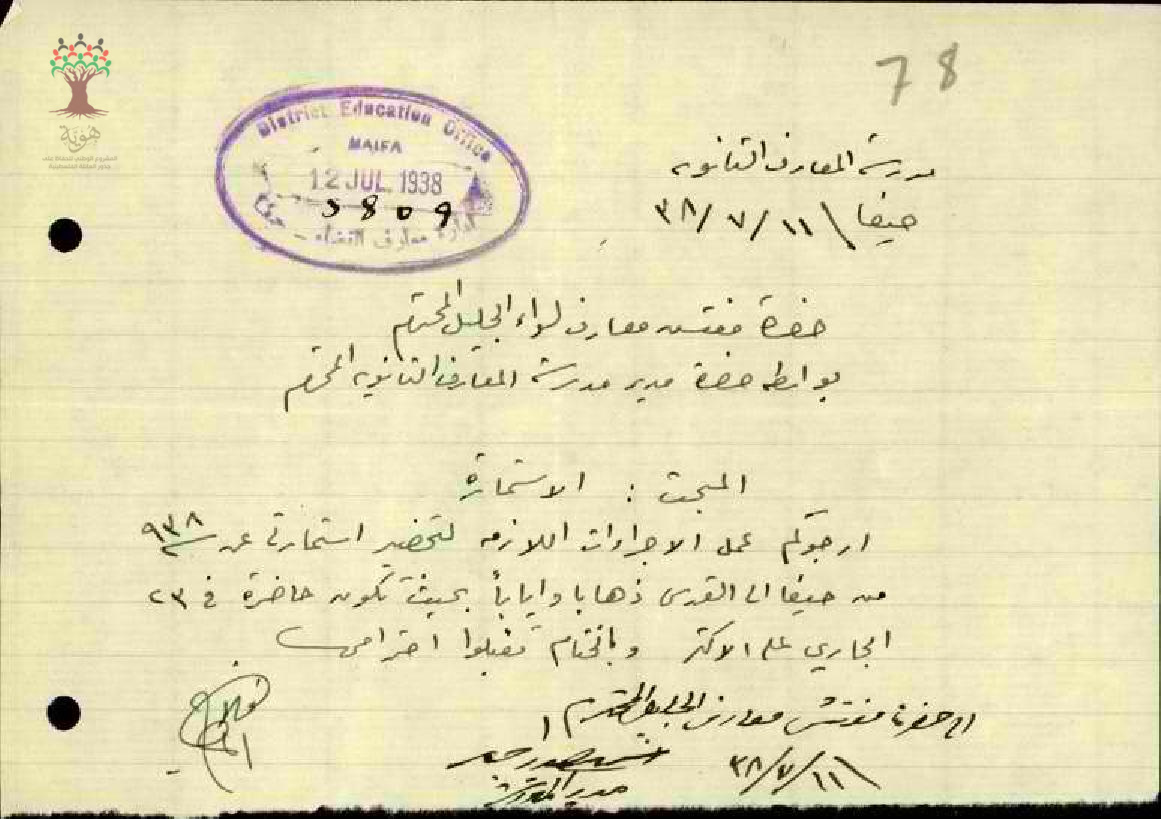 78
هوية
District Education Office
HAIFA
12 JUL 1938
5809
ادارة معارف القضاء - حيفا
مدرسة المعارف الثانويه
حيفا ١١/٧/٣٨
حضرة مفتش معارف لواء الجليل المحترم
بواسطه حضرة مدير مدرسة المعارف الثانويه المحترم
المبحث : الاستمارة
ارجوكم عمل الاجراءات اللازمه لتحضير استمارتي عن سنة ٩٣٨
من حيفا الى القدس ذهابا واياباً بحيث تكون حاضرة في ٢٣
الجاري على الاكثر وبالختام تفبلوا احترامي
الى حضرة مفتش معارف الجليل المحترم
مدير المدرسة
١١/٧/٣٨